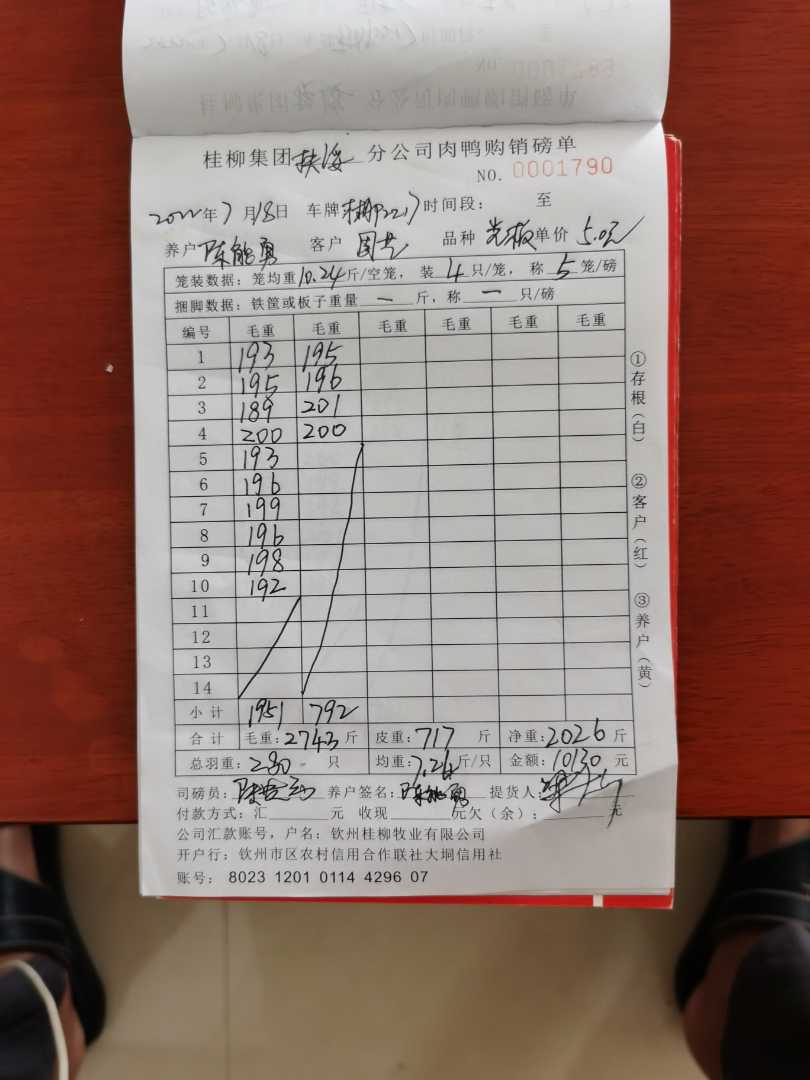 桂柳集团扶绥分公司肉鸭购销磅单
NO. 0001790
2022年7月18日 车牌 时间段： 至
养户 陈能勇 客户 周艺 品种 光板 单价 5.0元
笼装数据：笼均重10.24斤/空笼，装4只/笼，称5笼/磅
捆脚数据：铁筐或板子重量 一 斤，称 一 只/磅
编号 毛重 毛重 毛重 毛重 毛重 毛重
1 193 195
2 195 196
3 189 201
4 200 200
5 193
6 196
7 199
8 196
9 198
10 192
11
12
13
14
小计 1951 792
合计 毛重：2743斤 皮重：717 斤 净重：2026斤
总羽重：280 只 均重：7.24斤/只 金额：10130元
司磅员： 养户签名：陈能勇 提货人：
付款方式：汇 元 收现 元欠（余）： 元
公司汇款账号，户名：钦州桂柳牧业有限公司
开户行：钦州市区农村信用合作联社大垌信用社
账号：8023 1201 0114 4296 07
①存根（白）
②客户（红）
③养户（黄）